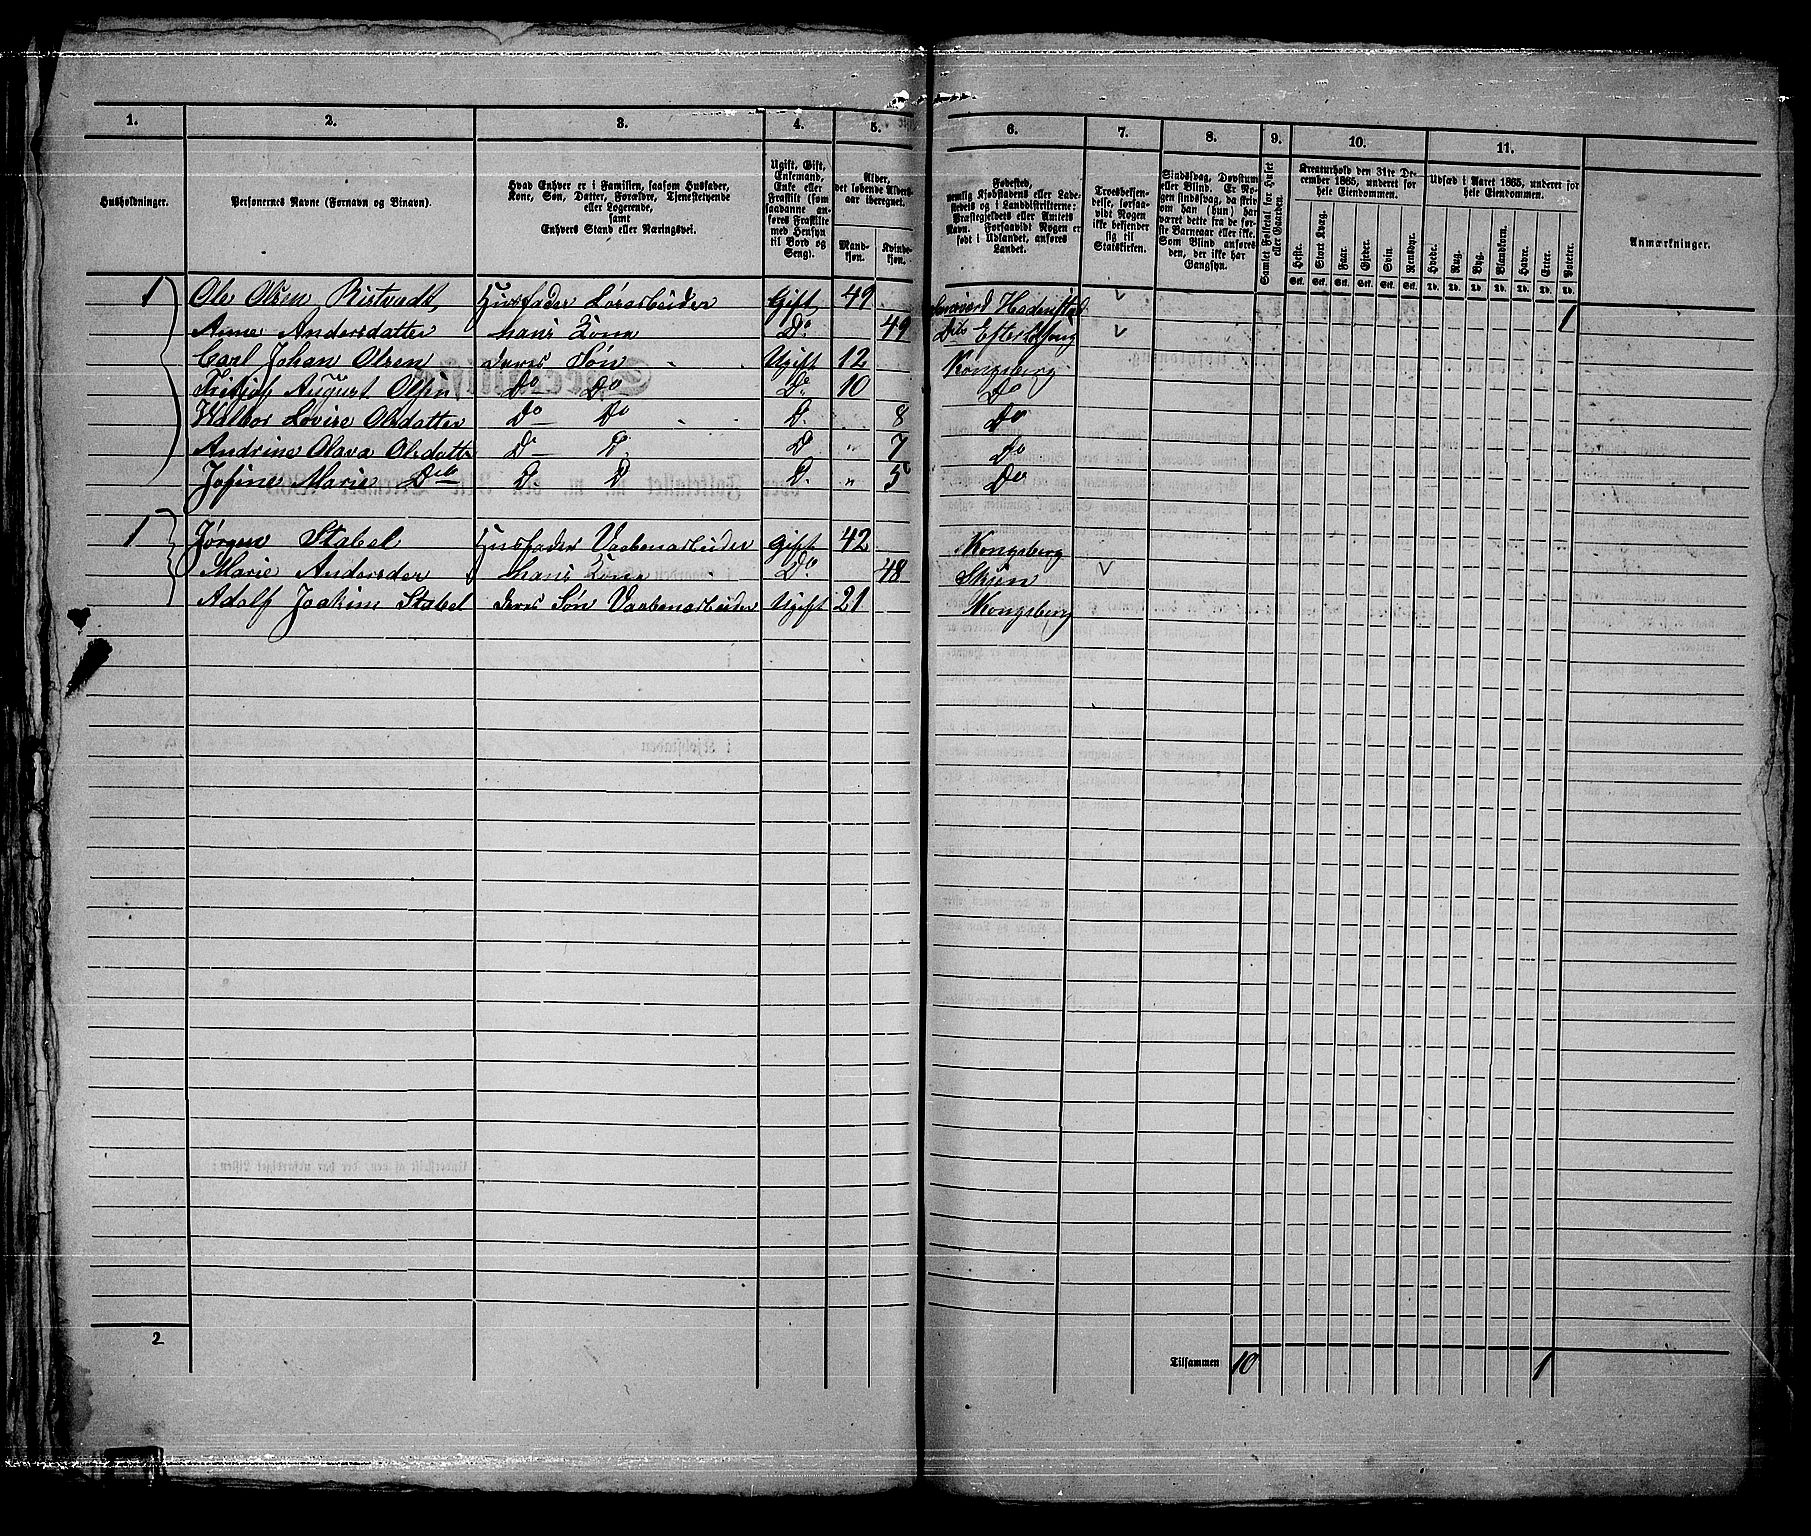 1. 2. 3. 4. 5. 6. 7. 8. 9. 10. 11.
Husholdninger. Personernes Navne (Fornavn og Binavn). Hvad Enhver er i Familien, saasom Husfader, Kone, Søn, Datter, Forældre, Tjenestetyende eller Logerende, samt Enhvers Stand eller Næringsvei. Ugift, Gift, Enkemand, Enke eller Fraskilt (som saadanne anføres Fraskilte med Hensyn til Bord og Seng). Alder, det løbende Aldersaar iberegnet. Mandkjøn. Kvindekjøn. Fødested, nemlig Kjøbstadens eller Ladestedets og i Landdistrikterne: Præstegjeldets eller Amtets Navn. Forsaavidt Nogen er født i Udlandet, anføres Landet. Troesbekjendelse, forsaavidt Nogen ikke bekjender sig til Statskirken. Sindssvag, Døvstum eller Blind. Er Nogen sindssvag, da skrives om han (hun) har været dette fra de første Barneaar eller ikke. Som Blind anføres den, der ikke har Gangsyn. Samlet Folketal for Huset eller Gaarden. Kreaturhold den 31te December 1865, underet for hele Eiendommen. Heste. Stort Kvæg. Faar. Gjeder. Svin. Rensdyr. Udsæd i Aaret 1865, underet for hele Eiendommen. Hvede. Rug. Byg. Blandkorn. Havre. Erter. Poteter. Anmærkninger.
Stk. Stk. Stk. Stk. Stk. Stk. Td. Td. Td. Td. Td. Td. Td.
1 Ole Olsen Ristvedt, Husfader Løsarbeider Gift 49 Hedenstad v
Anne Andersdatter hans Kone Do 49 Dito Efteløtsog v 1
Carl Johan Olsen deres Søn Ugift 12 Kongsberg
Fritjof August Olsen Do — Do Do 10 Do
Walbor Lovise Olsdatter Do — Do D. 8 Do
Andrine Olava Olsdatt D — D D " 7 Do
Josine Marie Dito D D D. " 5 Do
1 Jørgen Stabel Husfader Vaabenarbeider Gift 42 Kongsberg
Marie Andersder hans Kone Do 48 Skien v
Adolf Joakim Stabel deres Søn Vaabenarbeider Ugift 21 Kongsberg
2
Tilsammen 10 1